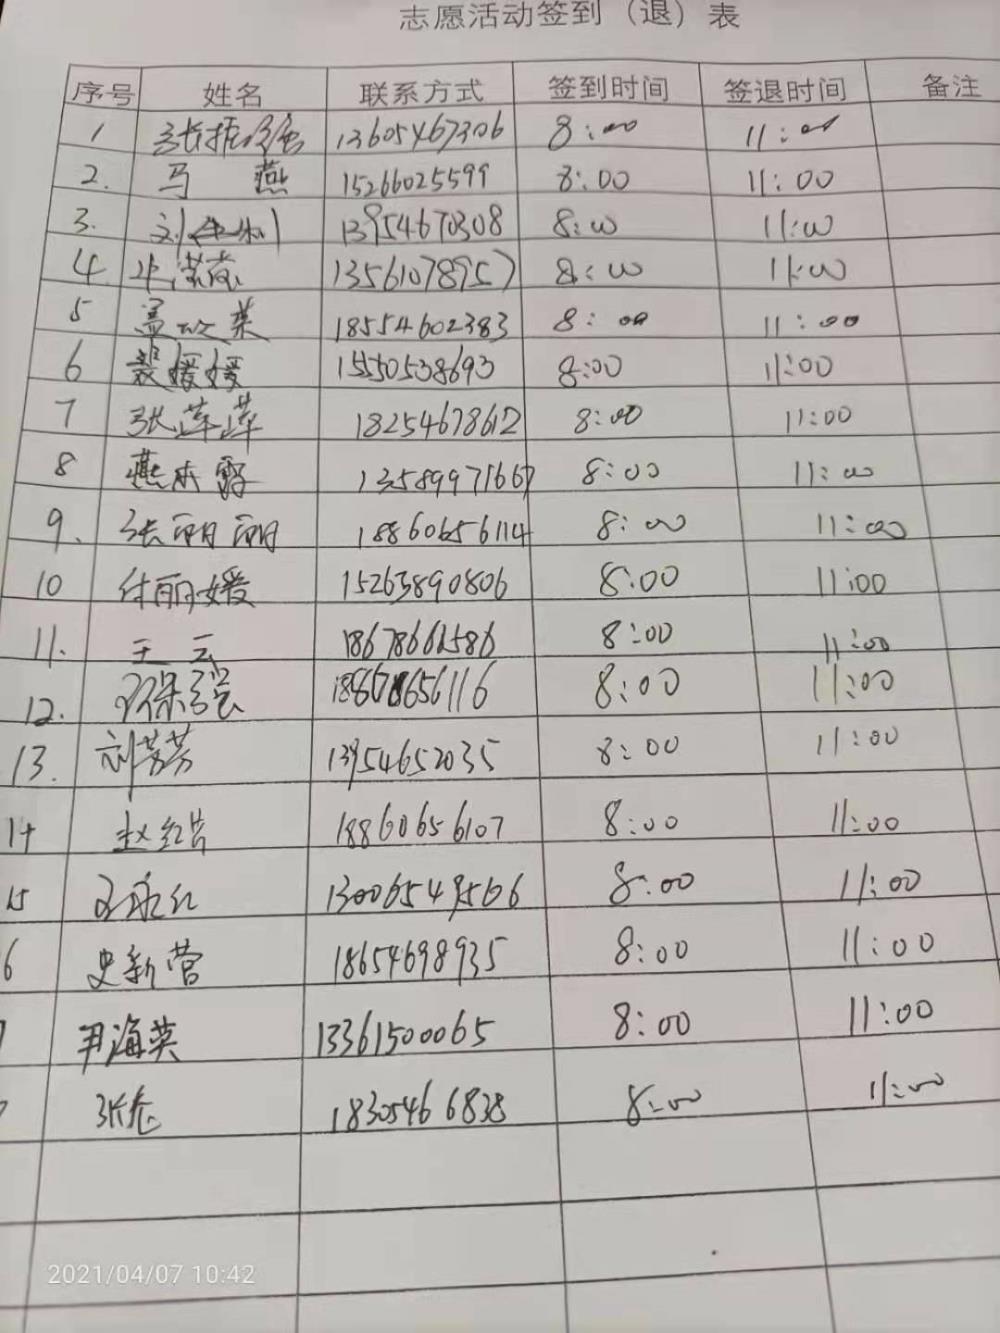 志愿活动签到（退）表
序号 姓名 联系方式 签到时间 签退时间 备注
1 13605467306 8:00 11:00
2. 马燕 15266025599 8:00 11:00
3. 13954670308 8:00 11:00
4. 13561078957 8:00 11:00
5 18554602383 8:00 11:00
6 裴媛媛 15550538693 8:00 11:00
7 张萍萍 18254678612 8:00 11:00
8 13589971667 8:00 11:00
9. 张丽丽 18860656114 8:00 11:00
10 付丽媛 15263890806 8:00 11:00
11. 王云 18678661586 8:00 11:00
12. 8:00 11:00
13. 刘芳芳 13954652035 8:00 11:00
14 18860656107 8:00 11:00
15 王永红 8:00 11:00
6 史新营 18654698935 8:00 11:00
尹海英 13361500065 8:00 11:00
18305466838 8:00 11:00
2021/04/07 10:42